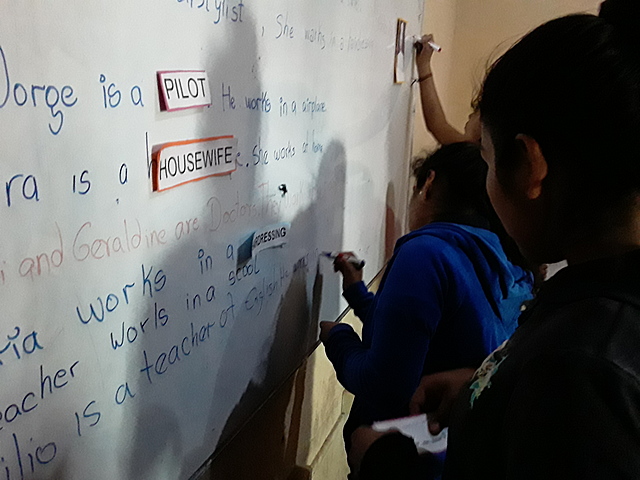 stylist . She works in a
Jorge is a PILOT . He works in a airplane
ra is a HOUSEWIFE . She works at home
i and Geraldine are Doctors. They
ría works in a DRESSING
eacher works in a scool
ilio is a teacher of English. He